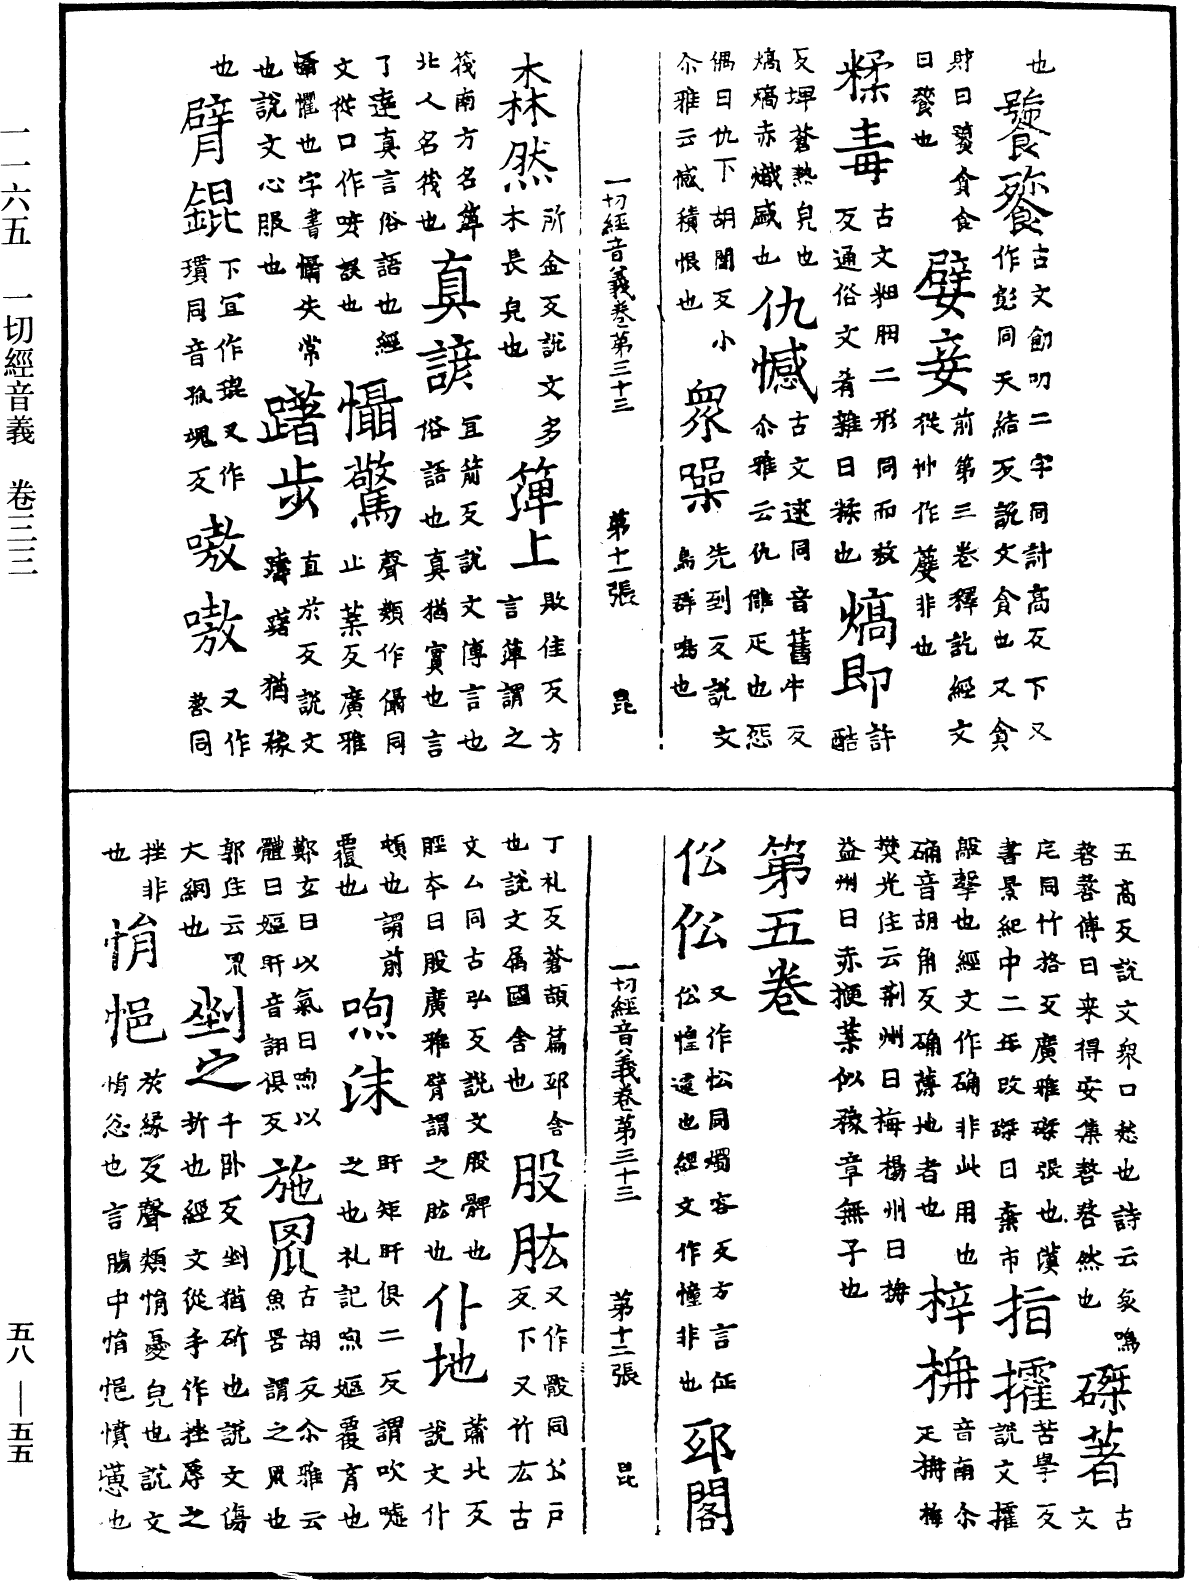 一一六五　一切經音義　卷三三
五八——五五
也饕餮古文飻叨二字同計高反下又
作䬣同天結反說文貪也又貪
財曰饕貪食
曰餮也嬖妾前第三卷釋訖經文
從艸作薜非也
糅毒古文粈䏔二形同而救
反通俗文肴雜曰糅也熇即許
酷
反埤蒼熱皃也
熇熇赤熾盛也仇憾古文逑同音舊牛反
尒雅云仇讎疋也怨
偶曰仇下胡闇反小
尒雅云憾積恨也眾噪先到反說文
鳥群鳴也
一切經音義卷第三十三　第十一張　昆
木林然所金反說文多
木長皃也簰上敗佳反方
言簰謂之
筏南方名簰
北人名筏也真諺宜箭反說文傳言也
俗語也真猶實也言
了達真言俗語也經
文從口作唁誤也懾驚聲類作㒤同
止葉反廣雅
懾懼也字書懾失常
也說文心服也躇步直於反說文
躊躇猶移
也臂錕下宜作琨又作
瑻同音孤魂反嗷嗷又作
嗸同
五高反說文衆口愁也詩云哀鳴
嗸嗸傳曰来得安集嗸嗸然也磔著古
文
厇同竹格反廣雅磔張也漢
書景紀中二年改磔曰棄市指㩴苦學反
說文㩴
敲擊也經文作确非此用也
确音胡角反确薄地者也梓柟音南尒
疋柟梅
樊光注云荆州曰梅楊州曰柟
益州曰赤㮴葉似豫章無子也
第五卷
伀伀又作忪同燭容反方言征
伀惶遽也經文作憧非也邸閣
一切經音義卷第三十三　第十二張　昆
丁礼反蒼頡篇邸舍
也說文属國舍也股肱又作骰同公户
反下又竹厷古
文厶同古弘反說文股髀也
脛本曰股廣雅臂謂之肱也仆地蒲北反
說文仆
頓也謂前
覆也呴沫盱矩盱俱二反謂吹嘘
之也礼記呴嫗覆育也
鄭玄曰以氣曰呴以
體曰嫗盱音詡俱反施罛古胡反尒雅云
魚罟謂之罛也
郭注云罛
大網也剉之千卧反剉猶斫也說文傷
折也經文從手作挫辱之
挫非
也悁悒於緣反聲類悁憂皃也說文
悁忿也言腸中悁悒憤懣也